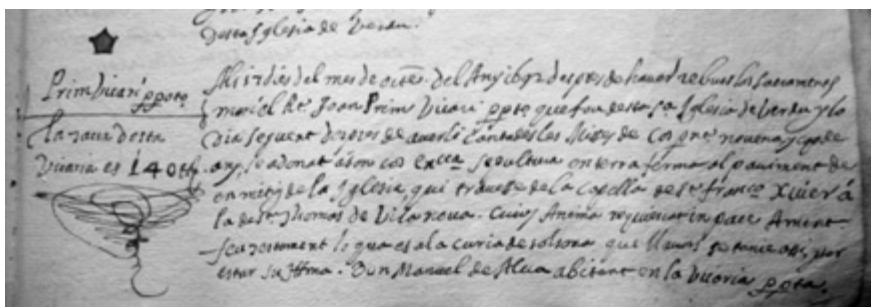 desta Iglesia de Verdu.
Prim Vicari ppetu
la raco desta
Vicaria es 140 th.
Als 17 dies del mes de octe. del Any 1692 despres de haver rebuts los sacraments
mori el Rt. Joan Prim Vicari ppetu que fou desta Sa Iglesia de Verdu y lo
Dia seguent despres de averli Cantades les Misses de Cos pnt. novena y cap de
any, se a donat a son cos Ecca. sepultura en terra ferma al paviment de
en mitg de la Iglesia, qui travesse de la Capella de St. Franco. Xuier á
la de St. Thomas de Vilanova. Cuius Anima requiescat in pace Ament
feu testament lo qual es a la curia de Solsona que llavors se tenie assi, per
estar sa Illma. Don Manuel de Alva abitant en la Vicaria ppetu.